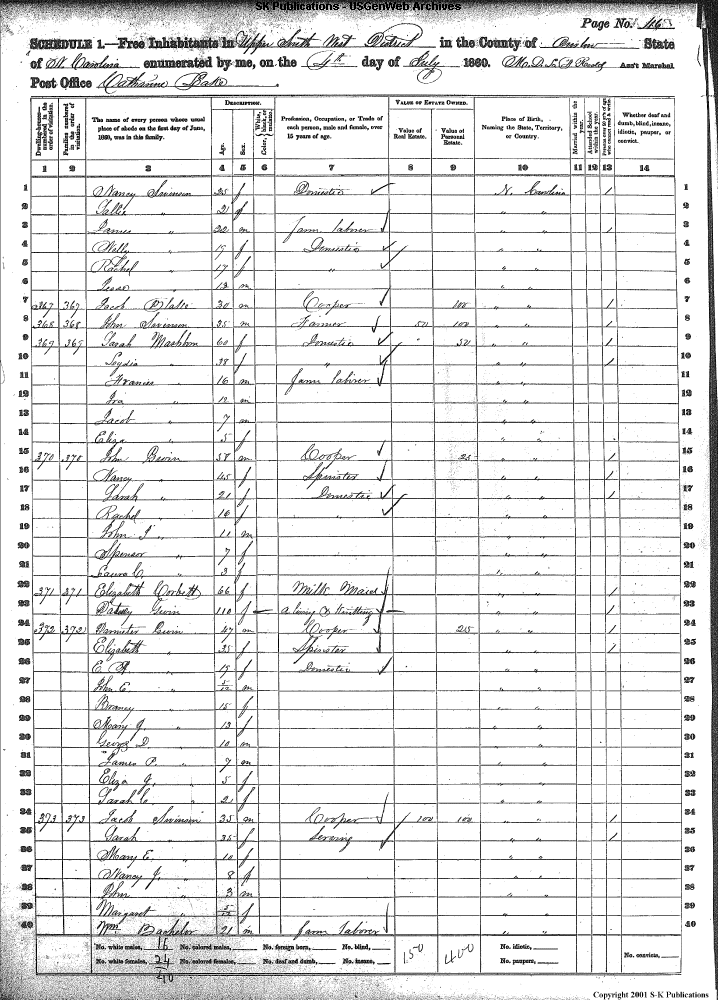 SK Publications - USGenWeb Archives
Page No. 46
SCHEDULE 1.—Free Inhabitants in Upper South West District in the County of Onslow State
of N. Carolina enumerated by me, on the 4th day of July 1860. Ass't Marshal
Post Office Catharine Lake
Dwelling-houses—numbered in the order of visitation.
Families numbered in the order of visitation.
The name of every person whose usual place of abode on the first day of June, 1860, was in this family.
DESCRIPTION.
Age.
Sex.
Color, White, black, or mulatto.
Profession, Occupation, or Trade of each person, male and female, over 15 years of age.
VALUE OF ESTATE OWNED.
Value of Real Estate.
Value of Personal Estate.
Place of Birth, Naming the State, Territory, or Country.
Married within the year.
Attended School within the year.
Persons over 20 y'rs of age who cannot read & write.
Whether deaf and dumb, blind, insane, idiotic, pauper, or convict.
1 2 3 4 5 6 7 8 9 10 11 12 13 14
1 Nancy 25 f Domestic N. Carolina / 1
2 21 f " " 2
3 James " 22 m farm laborer " " / 3
4 " 19 f Domestic " " 4
5 Rachel " 17 f " " " 5
6 " 13 m " " 6
7 367 367 Jacob 30 m Cooper 100 " " / 7
8 368 368 John 35 m Farmer 50 100 " " / 8
9 369 369 Sarah Mashborn 60 f Domestic " 50 " " / 9
10 Lydia " 38 f " " " / 10
11 Francis " 16 m farm laborer " " 11
12 Ira " 12 m " " 12
13 Jacob " 7 m " " 13
14 Eliza " 5 f " " 14
15 370 370 John 58 m Cooper 25 " " / 15
16 Nancy " 45 f Spinster " " / 16
17 Sarah " 21 f Domestic " " / 17
18 Rachel " 16 f " " 18
19 John " 11 m " " 19
20 Spensor " 7 f " " 20
21 Laura C. " 3 f " " 21
22 371 371 Elizabeth Corbett 66 f Milk Maid " " / 22
23 110 f " " / 23
24 372 372 47 m Cooper 25 " " / 24
25 Elizabeth " 35 f Spinster " " / 25
26 " 19 f Domestic " " 26
27 John E. " m " " 27
28 " 15 f " " 28
29 Mary J. " 13 f " " 29
30 George D. " 10 m " " 30
31 James P. " 7 m " " 31
32 Eliza J. " 5 f " " 32
33 Sarah C. " 2 f " " 33
34 373 373 Jacob 35 m Cooper 100 100 " " / 34
35 Sarah " 35 f Serving " " / 35
36 Mary E. " 10 f " " 36
37 Nancy J. " 8 f " " 37
38 John " 3 m " " 38
39 Margaret " f " " 39
40 Wm Bachelor 21 m farm laborer " " 40
No. white males, 16 No. colored males, No. foreign born, No. blind, 150 400 No. idiotic,
No. white females, 24 No. colored females, No. deaf and dumb, No. insane, No. paupers, No. convicts,
40
Copyright 2001 S-K Publications